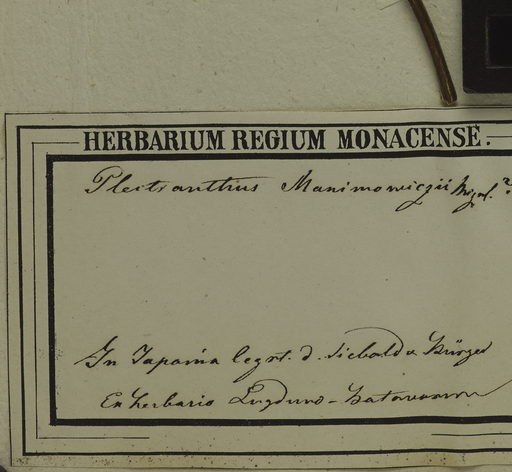 HERBARIUM REGIUM MONACENSE.
Plectranthus Maximowiczii Miql.?
In Japonia legit. d. Siebold & Bürger
Ex herbario Lugduno-batavorum